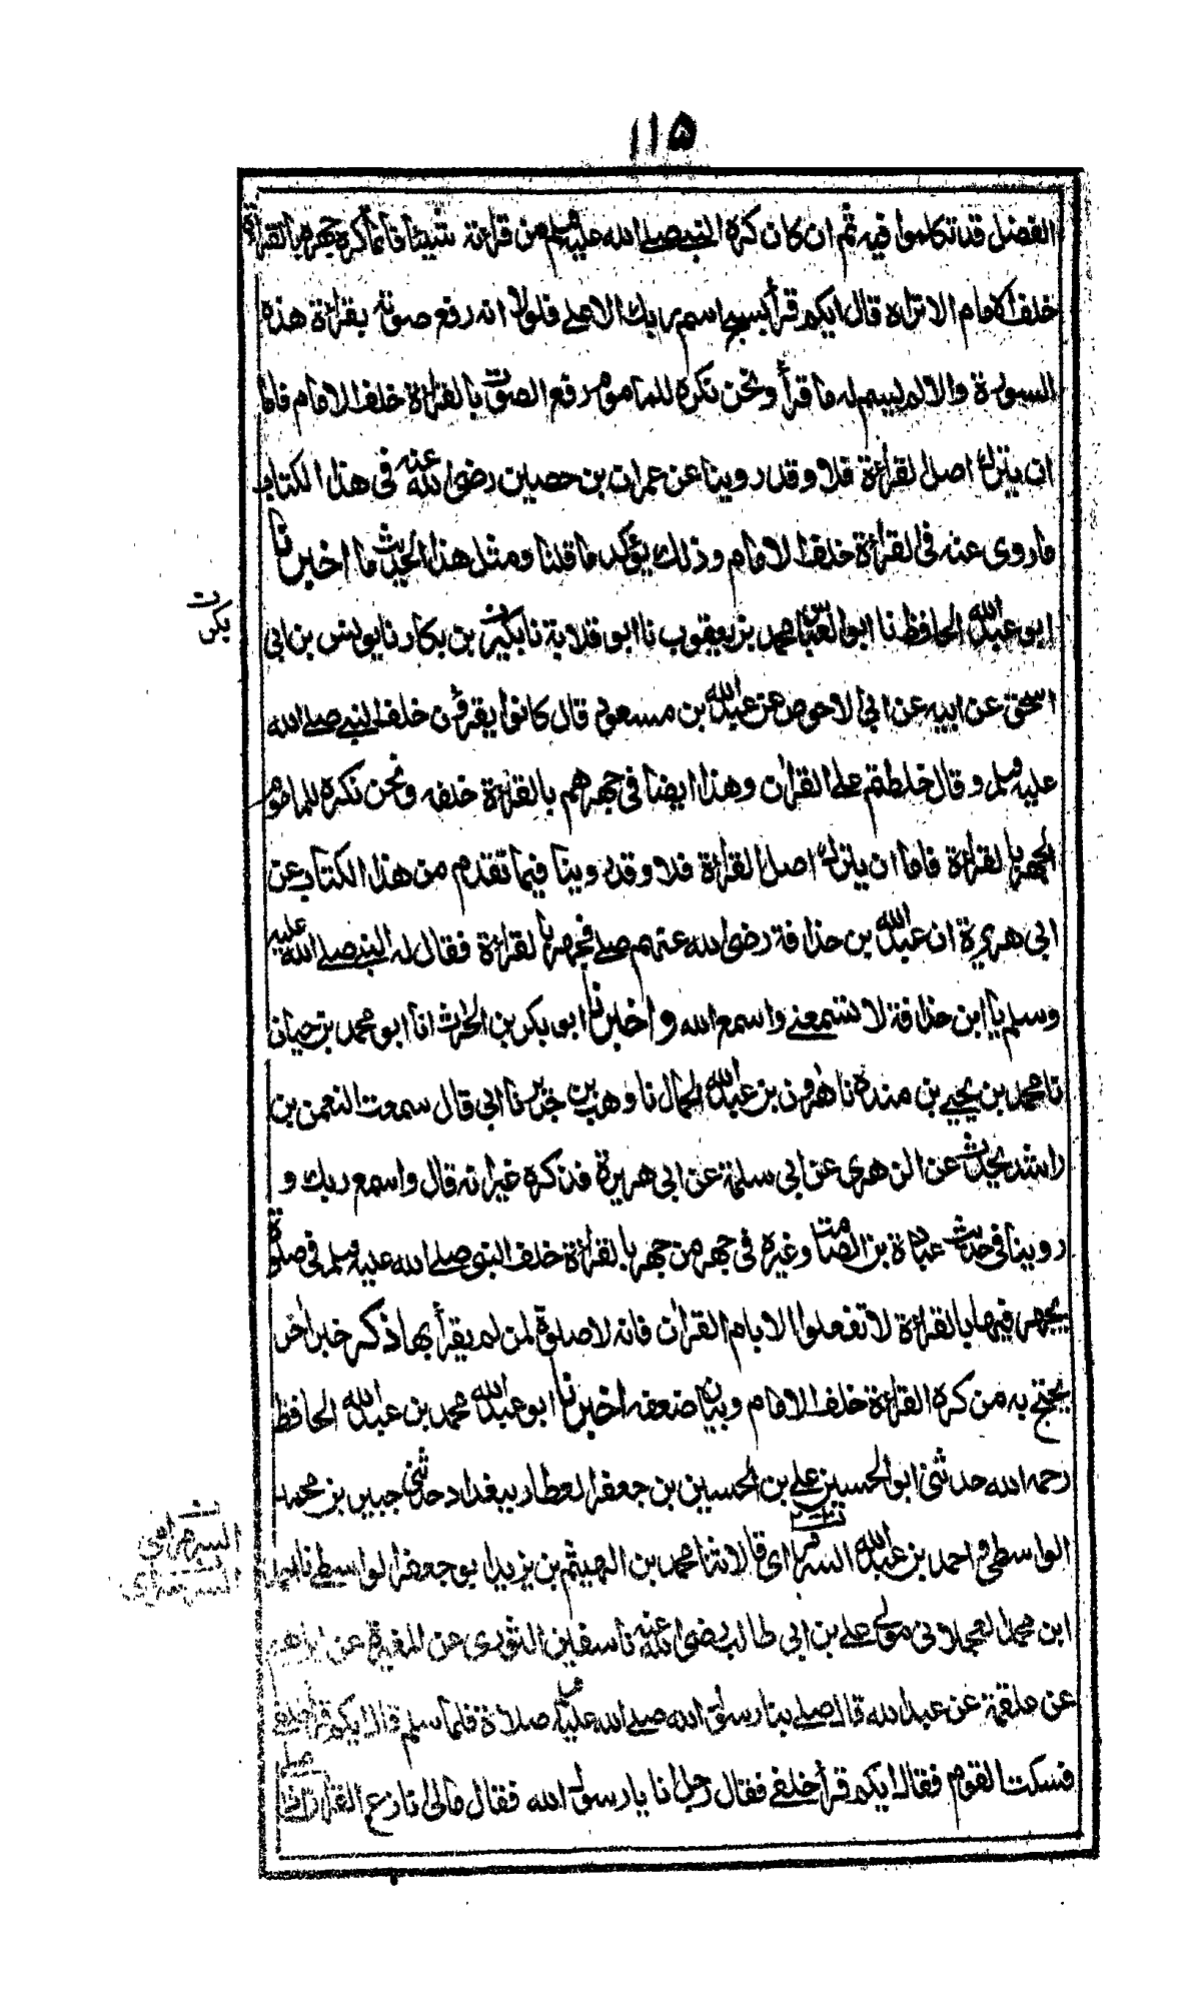 ١١٥
الفضل قد تكلموا فيه ثم ان كان كره النبي صلى الله عليه وسلم من قراءته شيئا فانما كره جهره بالقراءة
خلف الامام الا تراه قال ايكم قرأ بسبح اسم ربك الاعلى فلولا انه رفع صوته بقراءة هذه
السورة والا لم يسم له ما قرأ ونحن نكره للماموم رفع الصوت بالقراءة خلف الامام فاما
ان يترك اصل القراءة فلا وقد روينا عن عمران بن حصين رضى الله عنه فى هذا الكتاب
ما روى عنه فى القراءة خلف الامام وذلك يؤكد ما قلنا ومثل هذا الحديث ما اخبرنا
ابو عبد الله الحافظ نا ابو العباس محمد بن يعقوب نا ابو قلابة نا بكر بن بكار نا يونس بن ابى
بكر ن
اسحق عن ابيه عن ابى الاحوص عن عبد الله بن مسعود قال كانوا يقرؤن خلف النبي صلى الله
عليه وسلم وقال خلطتم على القران وهذا ايضا فى جهرهم بالقراءة خلفه ونحن نكره للماموم
الجهر بالقراءة فاما ان يترك اصل القراءة فلا وقد روينا فيما تقدم من هذا الكتاب عن
ابى هريرة ان عبد الله بن حذافة رضى الله عنهم صلى فجهر بالقراءة فقال له النبي صلى الله عليه
وسلم يا ابن حذافة لا تسمعنى واسمع الله واخبرنا ابو بكر بن الحارث انا ابو محمد بن حيان
نا محمد بن يحيى بن منده نا هرون بن عبد الله الحمال نا وهب بن جرير نا ابى قال سمعت النعمن بن
راشد يحدث عن الزهرى عن ابى سلمة عن ابى هريرة فذكره غير انه قال واسمع ربك و
روينا فى حديث عبادة بن الصامت وغيره فى جهر من جهر بالقراءة خلف النبى صلى الله عليه وسلم فى صلوة
يجهر فيها بالقراءة لا تفعلوا الا بام القران فانه لا صلوة لمن لم يقرأ بها ذكر خبر اخر
يحتج به من كره القراءة خلف الامام وبيان ضعفه اخبرنا ابو عبد الله محمد بن عبد الله الحافظ
رحمه الله حدثنى ابو الحسين على بن الحسين بن جعفر العطار ببغداد حدثنى جبير بن محمد
الواسطى واحمد بن عبد الله السرمراى قالا ثنا محمد بن الهيثم بن يزيد ابو جعفر الواسطى نا
ابن العجلانى مولى على بن ابى طالب رضى الله عنه نا سفين الثورى عن المغيرة عن ابراهيم
عن علقمة عن عبد الله قال صلى بنا رسول الله صلى الله عليه وسلم صلاة فلما سلم قال ايكم قرأ خلفى
فسكت القوم فقال ايكم قرأ خلفى فقال رجل انا يا رسول الله فقال مالى انازع القران